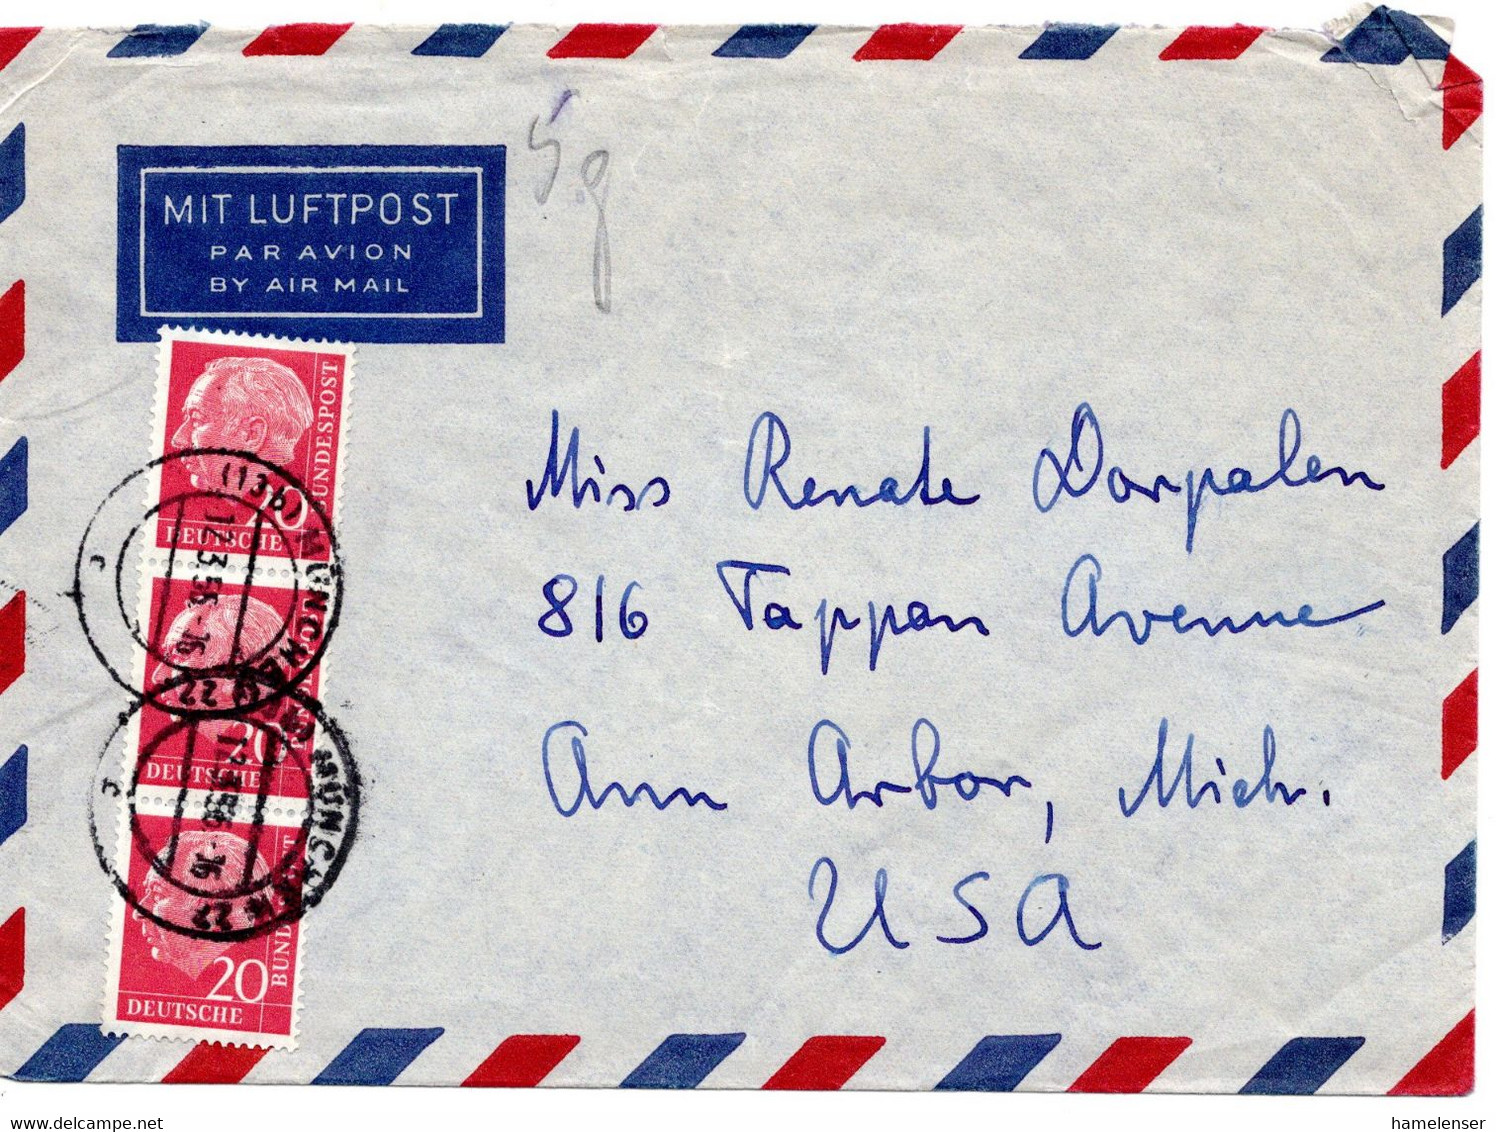 5 g
MIT LUFTPOST
PAR AVION
BY AIR MAIL
20
DEUTSCHE BUNDESPOST
(13b) MÜNCHEN 22
12.3.56.-16
c
20
DEUTSCHE
20
DEUTSCHE BUNDESPOST
MÜNCHEN 22
12.3.56.-16
c
Miss Renate Dorpalen
816 Tappan Avenue
Ann Arbor, Mich.
USA
www.delcampe.net
hamelenser